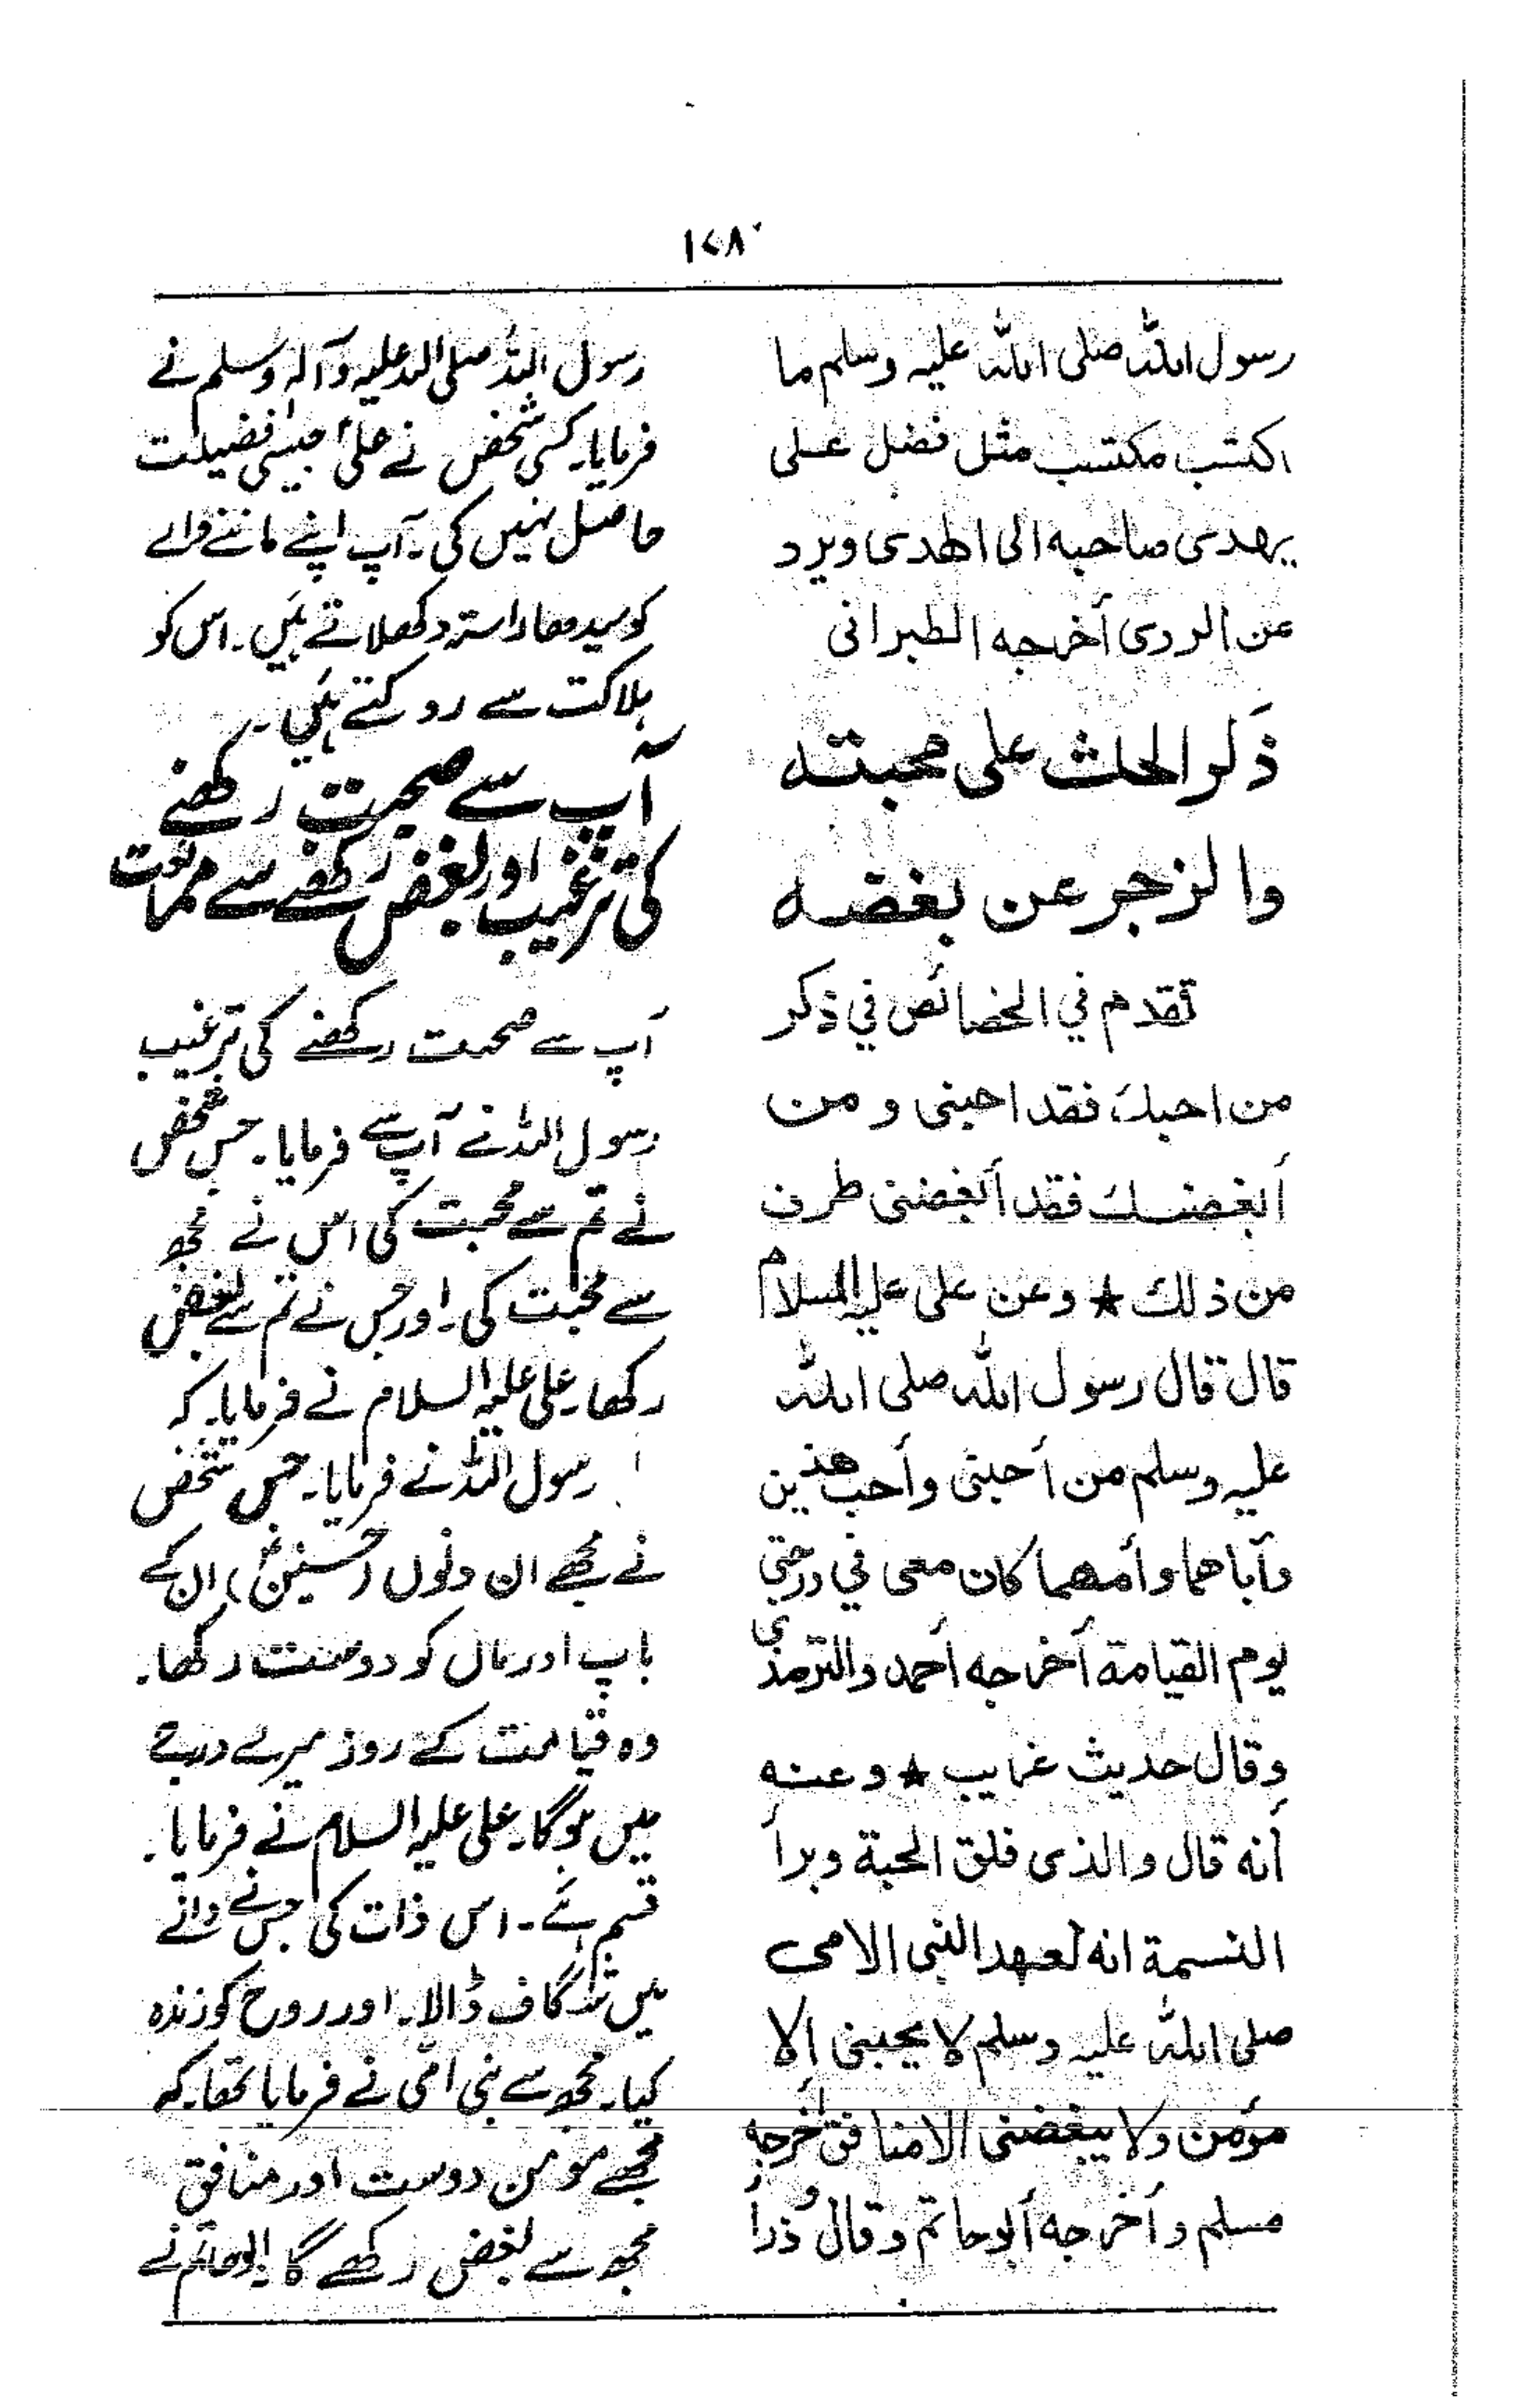 ۱۷۸
رسول الله صلى الله عليه وسلم ما
اكتسب مكتسب مثل فضل على
يهدى صاحبه الى الهدى ويرد
عن الردى أخرجه الطبرانى
ذكر الحث على محبته
والزجر عن بغضه
تقدم في الخصائص في ذكر
من احبك فقد احبنى و من
أبغضك فقد أبغضنى طرف
من ذلك ★ وعن على عليه السلام
قال قال رسول الله صلى الله
عليه وسلم من أحبنى وأحب هذين
وأباهما وأمهما كان معى في درجتى
يوم القيامة أخرجه أحمد والترمذي
وقال حديث غريب ★ وعنه
أنه قال والذى فلق الحبة وبرأ
النسمة انه لعهد النبى الامى
صلى الله عليه وسلم لا يحبنى إلا
مؤمن ولا يبغضنى الا منافق أخرجه
مسلم وأخرجه أبو حاتم وقال وذرأ
رسول اللہ صلی اللہ علیہ وآلہ وسلم نے
فرمایا۔ کسی شخص نے علیؑ جیسی فضیلت
حاصل نہیں کی۔ آپ اپنے ماننے والے
کو سیدھا راستہ دکھلاتے ہیں۔ اس کو
ہلاکت سے روکتے ہیں۔
آپ سے محبت رکھنے
کی ترغیب اور بغض رکھنے سے ممانعت
آپ سے محبت رکھنے کی ترغیب
رسول اللہ نے آپ سے فرمایا۔ جس شخص
نے تم سے محبت کی اس نے مجھ
سے محبت کی۔ اور جس نے تم سے بغض
رکھا۔ علی علیہ السلام نے فرمایا۔ کہ
رسول اللہ نے فرمایا۔ جس شخص
نے مجھے ان دونوں (حسنینؑ) ان کے
باپ اور ماں کو دوست رکھا۔
وہ قیامت کے روز میرے درجے
میں ہوگا۔ علی علیہ السلام نے فرمایا۔
قسم ہے۔ اس ذات کی جس نے دانے
میں شگاف ڈالا۔ اور روح کو زندہ
کیا۔ مجھ سے نبی امی نے فرمایا تھا۔ کہ
مجھے مومن دوست اور منافق
مجھ سے بغض رکھے گا۔ ابو حاتم نے